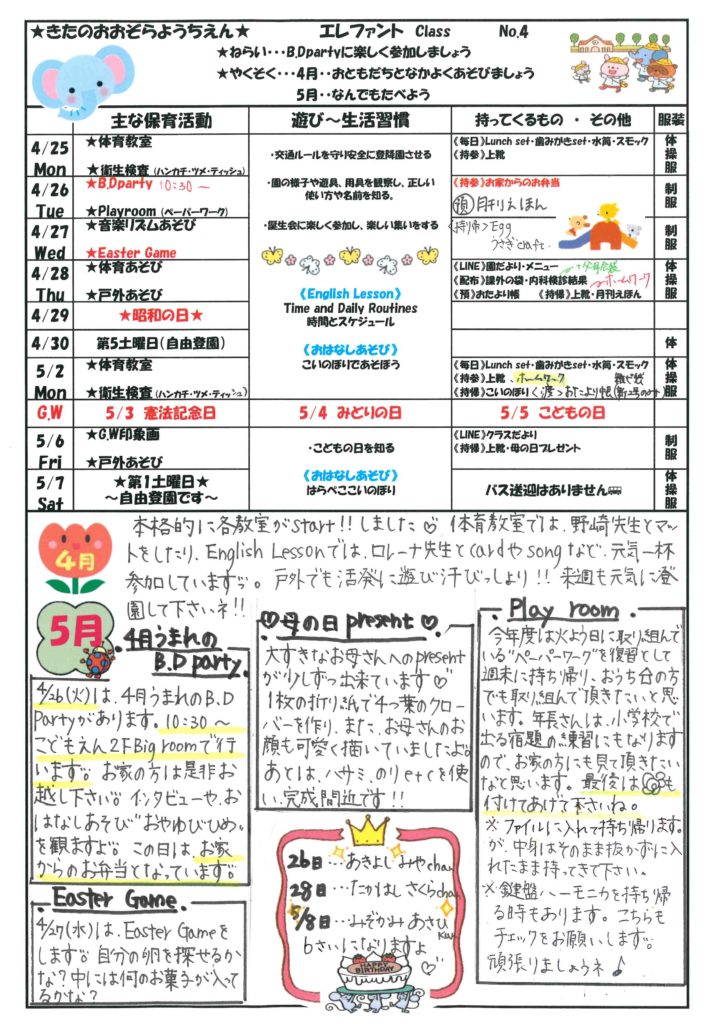 ★きたのおおぞらようちえん★　エレファント　Class　No.4
★ねらい・・・B.Dpartyに楽しく参加しましょう
★やくそく・・・4月・・おともだちとなかよくあそびましょう
5月・・なんでもたべよう
主な保育活動　遊び～生活習慣　持ってくるもの ・ その他　服装
4/25 Mon
★体育教室
★衛生検査（ハンカチ・ツメ・ティッシュ）
・交通ルールを守り安全に登降園させる
《毎日》Lunch set・歯みがきset・水筒・スモック
《持参》上靴
体操服
4/26 Tue
★B.Dparty 10:30～
★Playroom（ペーパーワーク）
・園の様子や遊具、用具を観察し、正しい
使い方や名前を知る。
《持参》お家からのお弁当
預 月刊えほん
制服
4/27 Wed
★音楽リズムあそび
★Easter Game
・誕生会に楽しく参加し、楽しい集いをする
《持帰》Egg
うさぎcraft.
制服
4/28 Thu
★体育あそび
★戸外あそび
《English Lesson》
Time and Daily Routines
時間とスケジュール
《LINE》園だより・メニュー
《配布》課外の袋・内科検診結果 ホームワーク
《預》おたより帳　《持帰》上靴・月刊えほん
体操服
4/29
★昭和の日★
4/30
第5土曜日（自由登園）
体
5/2 Mon
★体育教室
★衛生検査（ハンカチ・ツメ・ティッシュ）
《おはなしあそび》
こいのぼりであそぼう
《毎日》Lunch set・歯みがきset・水筒・スモック
《持参》上靴、ホームワーク
《持帰》こいのぼり《渡》おたより帳
体操服
G.W　5/3 憲法記念日　5/4 みどりの日　5/5 こどもの日
5/6 Fri
★G.W印象画
★戸外あそび
・こどもの日を知る
《LINE》クラスだより
《持帰》上靴・母の日プレゼント
制服
5/7 Sat
★第1土曜日★
～自由登園です～
《おはなしあそび》
はらぺここいのぼり
バス送迎はありません
体操服
4月
本格的に各教室がstart!!しました♡ 体育教室では、野崎先生とマッ
トをしたり、English Lessonでは、ロレーナ先生とcardやsongなど、元気一杯
参加しています。戸外でも活発に遊び汗びっしょり!! 来週も元気に登
園して下さいネ!!
5月
4月うまれの
B.D party.
4/26(火)は、4月うまれのB.D
Partyがあります。10:30～
こどもえん2F Big roomで行
います。お家の方は是非お
越し下さい。インタビューや、お
はなしあそび"おやゆびひめ"
を観ますよ。この日は、お家
からのお弁当となっています。
Easter Game.
4/27(水)は、Easter Gameを
します。自分の卵を探せるか
な?中には何のお菓子が入って
るかな?
♡母の日 present♡
大すきなお母さんへのpresent
が少しずつ出来ています♡
1枚の折り紙で4つ葉のクロー
バーを作り、また、お母さんのお
顔も可愛く描いていましたよ。
あとは、ハサミ、のりetcを使
い、完成間近です!!
26日…あきよし みやchan
28日…たかはし さくらchan
5/8日…みぞかみ あさひkun
6さいになりますよ♡
HAPPY BIRTHDAY
Play room.
今年度は火よう日に取り組んで
いる"ペーパーワーク"を復習として
週末に持ち帰り、おうちの方
でも取り組んで頂きたいと思
います。年長さんは、小学校で
出る宿題の練習にもなります
ので、お家の方にも見て頂きたい
なと思います。最後は も
付けてあげて下さいね。
※ファイルに入れて持ち帰ります。
が、中身はそのまま抜かずに入
れたまま持ってきて下さい。
※鍵盤ハーモニカを持ち帰
る時もあります。こちらも
チェックをお願いします。
頑張りましょうネ♪